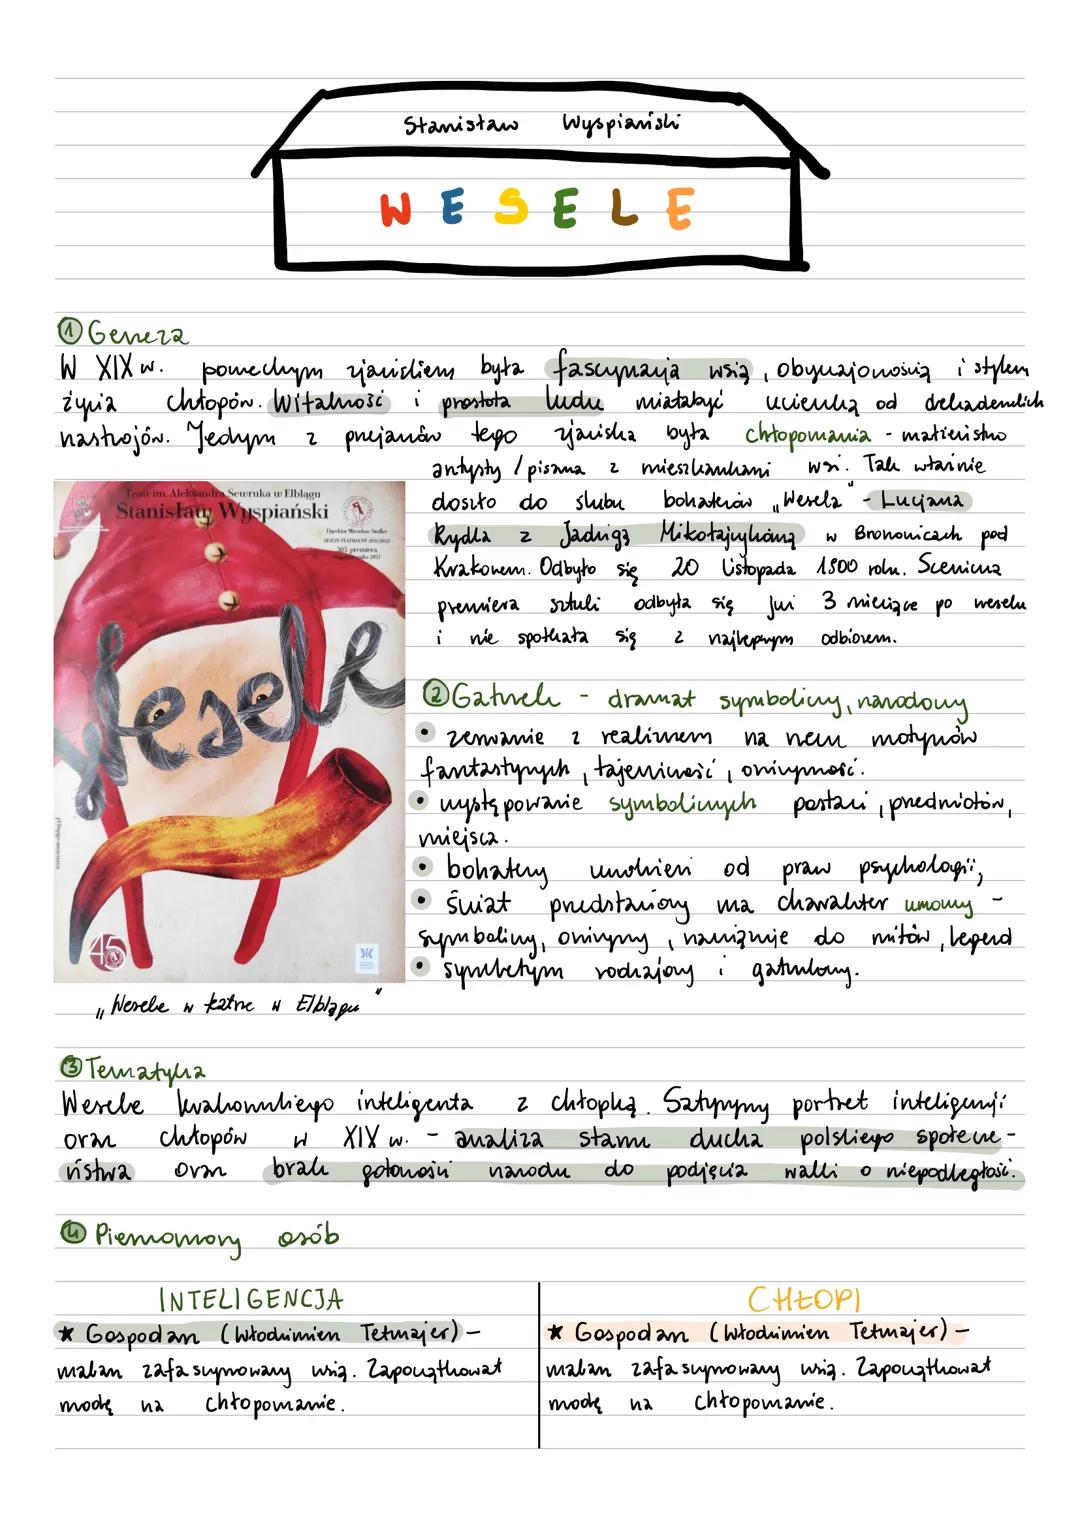 Stanisław Wyspiański
WESELE
① Geneza
W XIX w. powszechnym zjawiskiem była fascynacja wsią, obyczajowością i stylem
życia chłopów. Witalność i prostota ludu miała być ucieczką od dekadenckich
nastrojów. Jednym z przejawów tego zjawiska była chłopomania - małżeństwo
artysty/pisarza z mieszkankami wsi. Tak właśnie
doszło do ślubu bohaterów „Wesela" - Lucjana
Rydla z Jadwigą Mikołajczykówną w Bronowicach pod
Krakowem. Odbyło się 20 listopada 1900 roku. Sceniczna
premiera sztuki odbyła się już 3 miesiące po weselu
i nie spotkała się z najlepszym odbiorem.
Teatr im. Aleksandra Sewruka w Elblągu
Stanisław Wyspiański
Dyrektor Mirosław Siedler
SEZON TEATRALNY 2021/2022
premiera
Wesele
45
„Wesele w teatrze w Elblągu"
② Gatunek - dramat symboliczny, narodowy
• zerwanie z realizmem na rzecz motywów
fantastycznych, tajemniczość, oniryczność.
• występowanie symbolicznych postaci, przedmiotów,
miejsca.
• bohaterzy uwolnieni od praw psychologii;
• Świat przedstawiony ma charakter umowny -
symboliczny, oniryczny, nawiązuje do mitów, legend
• synkretyzm rodzajowy i gatunkowy.
③ Tematyka
Wesele krakowskiego inteligenta z chłopką. Satyryczny portret inteligencji
oraz chłopów w XIX w. - analiza stanu ducha polskiego społecze-
ństwa oraz brak gotowości narodu do podjęcia walki o niepodległość.
④ Pierwowzory osób
INTELIGENCJA
★ Gospodarz (Włodzimierz Tetmajer) -
malarz zafascynowany wsią. Zapoczątkował
modę na chłopomanie.
CHŁOPI
★ Gospodarz (Włodzimierz Tetmajer) -
malarz zafascynowany wsią. Zapoczątkował
modę na chłopomanie.